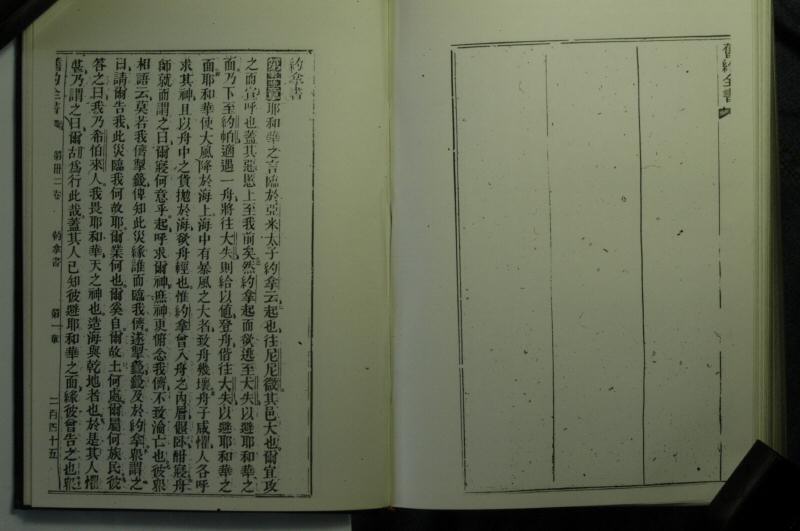 舊約全書
約拿書
耶和華之言臨於亞米太子約拿云起也往尼尼微其邑大也爾宜攻
之而宣呼也蓋其惡慝上至我前矣然約拿起而欲逃至大失以避耶和華之
面乃下至約帕適遇一舟將往大失則給以値登舟偕往大失以避耶和華之
面耶和華使大風降於海上海中有暴風之大者致舟幾壞舟子咸懼人各呼
求其神且以舟中之貨拋於海欲舟輕也惟約拿曾入舟之內層偃臥酣寢舟
師就而謂之曰爾寢何意乎起呼求爾神庶神更俯念我儕不致淪亡也彼衆
相語云莫若我儕掣籤俾知此災緣誰而臨我儕遂掣籤籤及於約拿衆謂之
曰請爾告我此災臨我何故耶爾業何也爾奚自爾故土何處爾屬何族民彼
答之曰我乃希伯來人我畏耶和華天之神也造海與乾地者也於是其人懼
甚乃謂之曰爾胡爲行此哉蓋其人已知彼避耶和華之面緣彼曾告之也衆
舊約全書 第卅二卷 約拿書 第一章 二百四十五